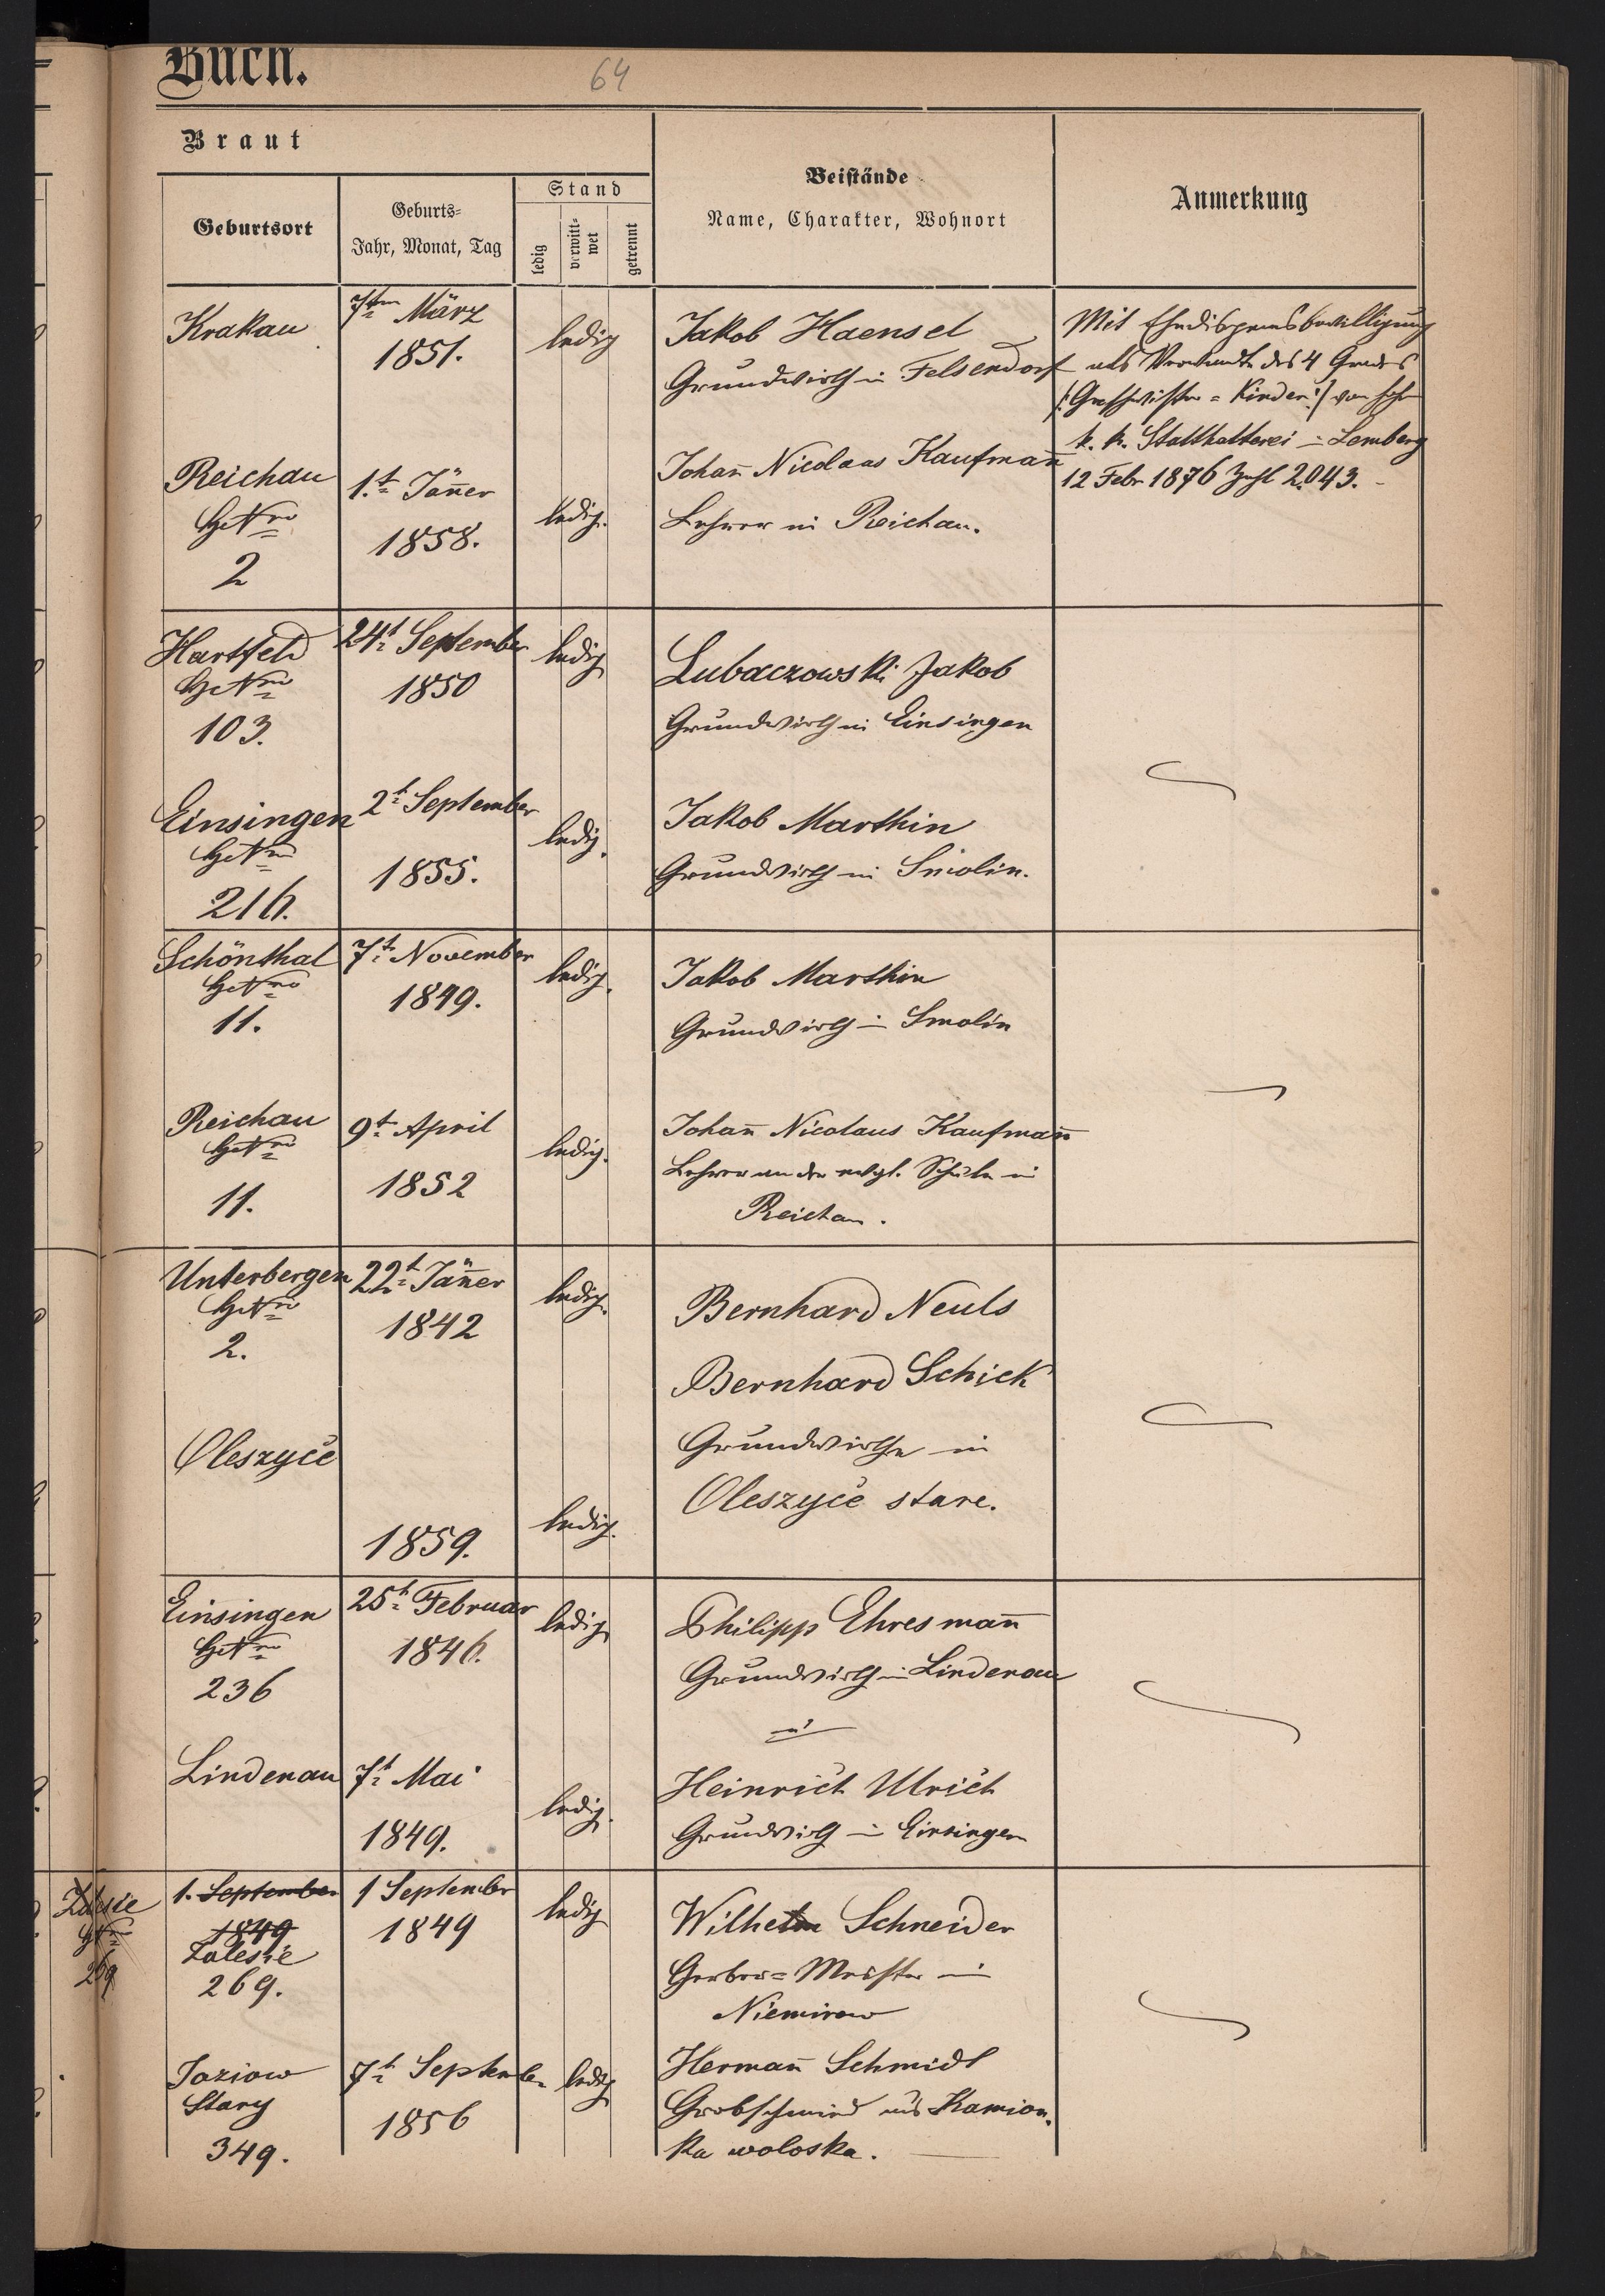 Buch.
64
Braut
Geburtsort
Geburts-
Jahr, Monat, Tag
Stand
ledig
verwitt-
wet
getrennt
Beistände
Name, Charakter, Wohnort
Anmerkung
Krakau
7ten März
1851.
ledig
Jakob Haensel
Grundwirth in Felsendorf
Mit Ehedispensbewilligung
als Verwandte des 4 Grades
/:Geschwister-Kinder:/ von
k. k. Statthalterei in Lemberg
12 Febr 1876 Zahl 2043.
Reichau
HsNro
2
1.t Jäner
1858.
ledig.
Johan̄ Nicolaus Kaufman̄
Lehrer in Reichau.
Hartfeld
HsNro
103.
24t September
1850
ledig
Lubaczowski Jakob
Grundwirth in Einsingen
Einsingen
HsNro
216.
2t September
1855.
ledig.
Jakob Marthin
Grundwirth in Smolin.
Schönthal
HsNro
11.
7t November
1849.
ledig.
Jakob Marthin
Grundwirth in Smolin
Reichau
HsNro
11.
9t April
1852
ledig.
Johan̄ Nicolaus Kaufman̄
Lehrer an der evgl. Schule in
Reichau.
Unterbergen
HsNro
2.
22t Jäner
1842
ledig.
Bernhard Neuls
Bernhard Schick
Grundwirthe in
Oleszyce stare.
Oleszyce
1859.
ledig.
Einsingen
HsNro
236
25t Februar
1846.
ledig
Philipp Ehresman̄
Grundwirth in Lindenau
Lindenau
7t Mai
1849.
ledig.
Heinrich Ulrich
Grundwirth in Einsingen
Zalesie
HNro
269
1. September
1849
Zalesie
269.
1 September
1849
ledig
Wilhelm Schneider
Gerber-Meister in
Niemirow
Jaziow
Stary
349.
7t September
1856
ledig
Herman̄ Schmidt
Grobschmied aus Kamion-
ka woloska.